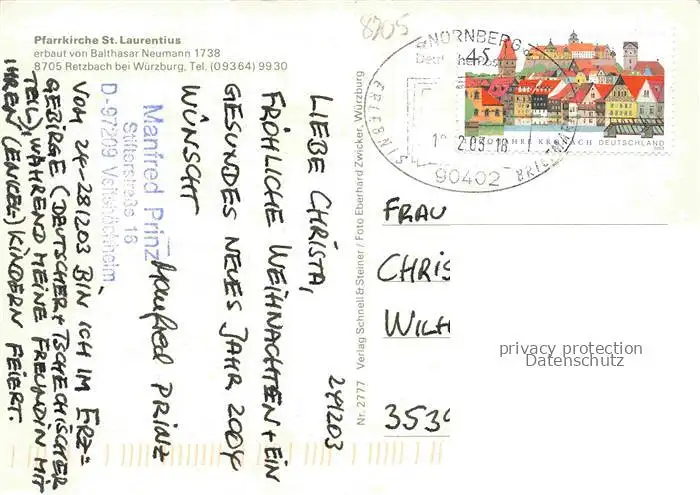 Pfarrkirche St. Laurentius
erbaut von Balthasar Neumann 1738
8705 Retzbach bei Würzburg, Tel. (09364) 9930
8705
NÜRNBERG
45
ERLEBNIS
BRIEFMARKEN
90402
JAHRE KRONACH DEUTSCHLAND
241203
LIEBE CHRISTA,
FRÖHLICHE WEIHNACHTEN + EIN
GESUNDES NEUES JAHR 2004
WÜNSCHT
Manfred PRINZ
Manfred Prinz
Stifterstraße 16
D-97209 Veitshöchheim
VOM 24-281203 BIN ICH IM ERZ=
GEBIRGE (DEUTSCHER + TSCHECHISCHER
TEIL), WÄHREND MEINE FREUNDIN MIT
IHREN (ENKEL=) KINDERN FEIERT.
Nr. 2777 Verlag Schnell & Steiner / Foto Eberhard Zwicker, Würzburg
FRAU
CHRIS
WILH
3539
privacy protection
Datenschutz